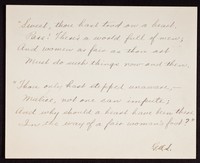 "Sweet, thou hast trod on a heart.
Pass! There's a world full of men;
And women as fair as thou art
Must do such things now and then.
"Thou only hast stepped unaware,—
Malice, not one can impute;
And why should a heart have been there
In the way of a fair woman's foot?"